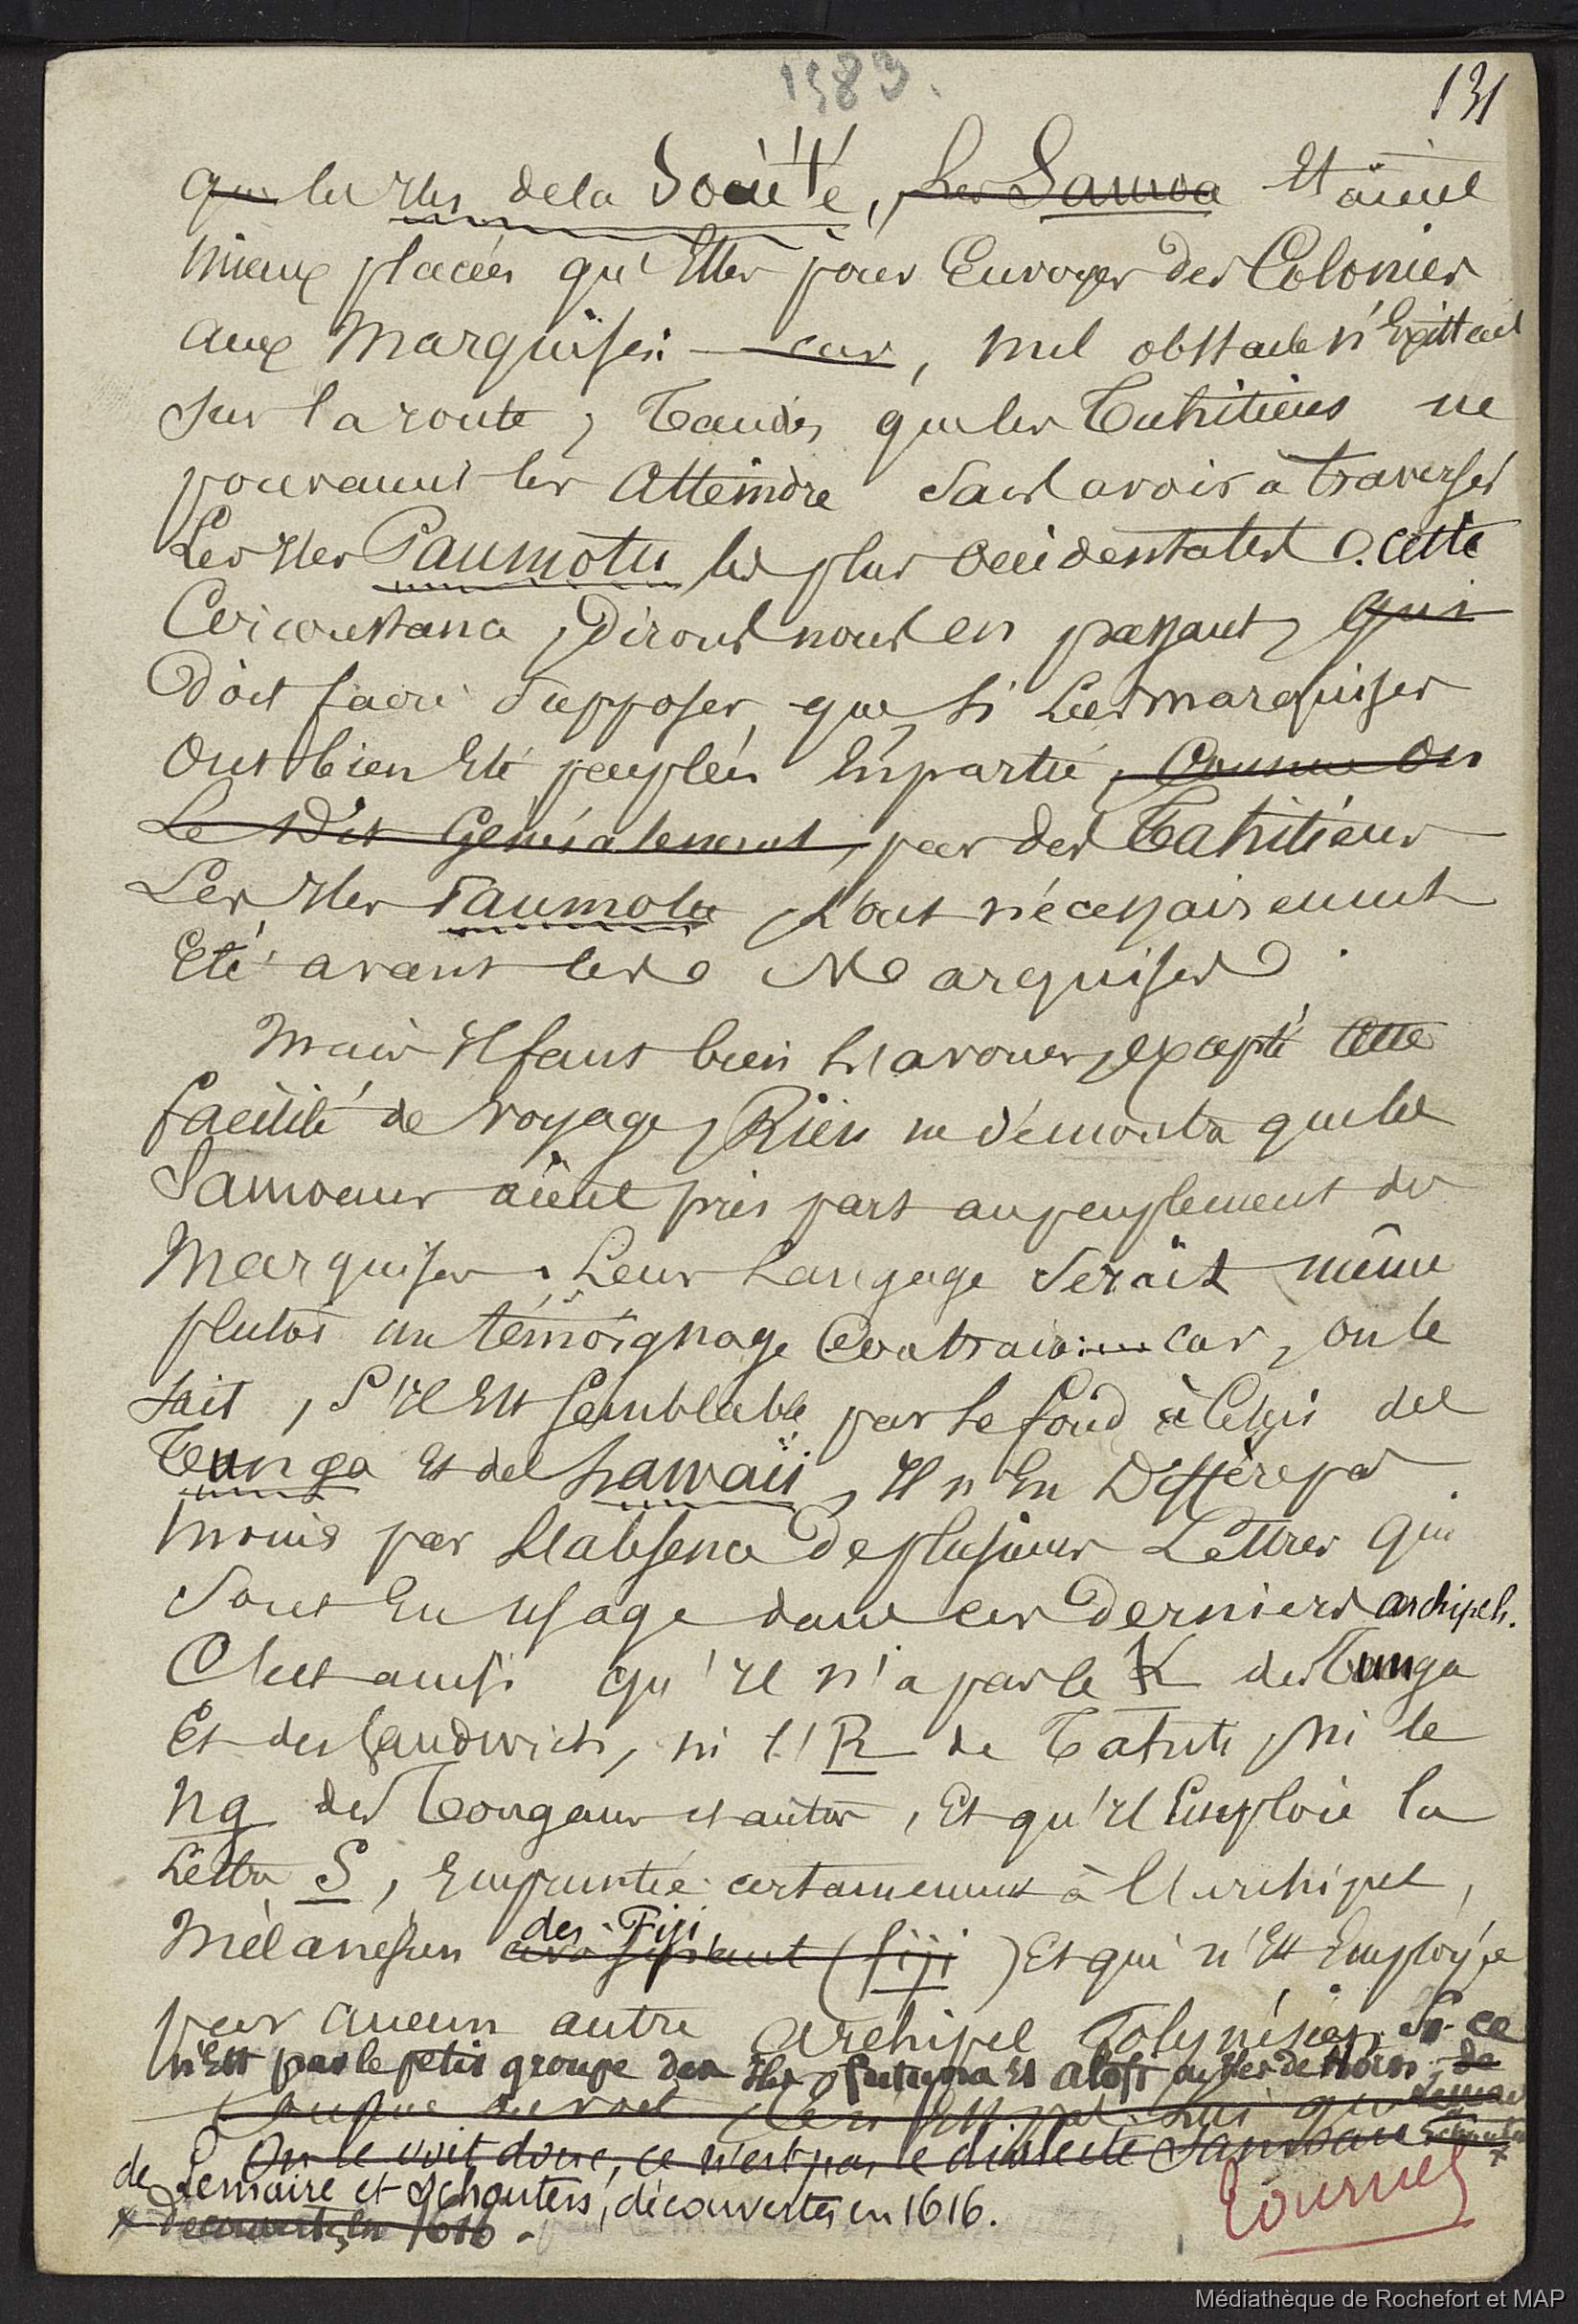 1583.
131
que les Iles de la Société, Les Samoa Etaient
mieux placées qu'Elles pour Envoyer des Colonies
aux Marquises: car, nul obstacle n'Existait
sur la route, Tandis que les Tahitiens ne
pouvaient les Atteindre sans avoir à traverser
Les Iles Paumotu les plus Occidentales. Cette
Circonstance, Dirons nous en passant, qui
Doit faire supposer, que, si Les marquises
Ont bien Eté peuplées En partie, Comme On
Le Dit Généralement, par des Tahitiens
Les Iles Paumotu l'ont nécessairement
Eté avant les Marquises.
Mais Il faut bien L'avouer, excepté cette
facilité de voyage, Rien ne démontre que les
Samoans aient pris part au peuplement des
Marquises. Leur Langage Serait même
plutôt un témoignage Contraire: car, on le
sait, S'Il Est Semblable par le fond à Celui des
Tunga Et des hawaii, Il n'En Diffère pas
moins par L'absence De plusieurs Lettres Qui
Sont En usage dans ces Derniers archipels.
C'est ainsi qu'Il n'a pas le K des Tunga
Et des Sandwich, ni l'R de Tahiti, Ni le
ng des Tongans et autres, Et qu'Il Emploie la
Lettre S, Empruntée certainement à l'Archipel,
Mélanésien des Fiji (fiji) Et qui n'Est Employée
par aucun autre Archipel Polynésien. Si ce
n'Est pas le petit groupe des Iles futuna Et alofi ou Iles de Horn, de
On le voit donc, ce n'est pas le dialecte Samoan
de Lemaire et Schouten, découvertes en 1616.
x Découvertes En 1616.
Tournez
Médiathèque de Rochefort et MAP